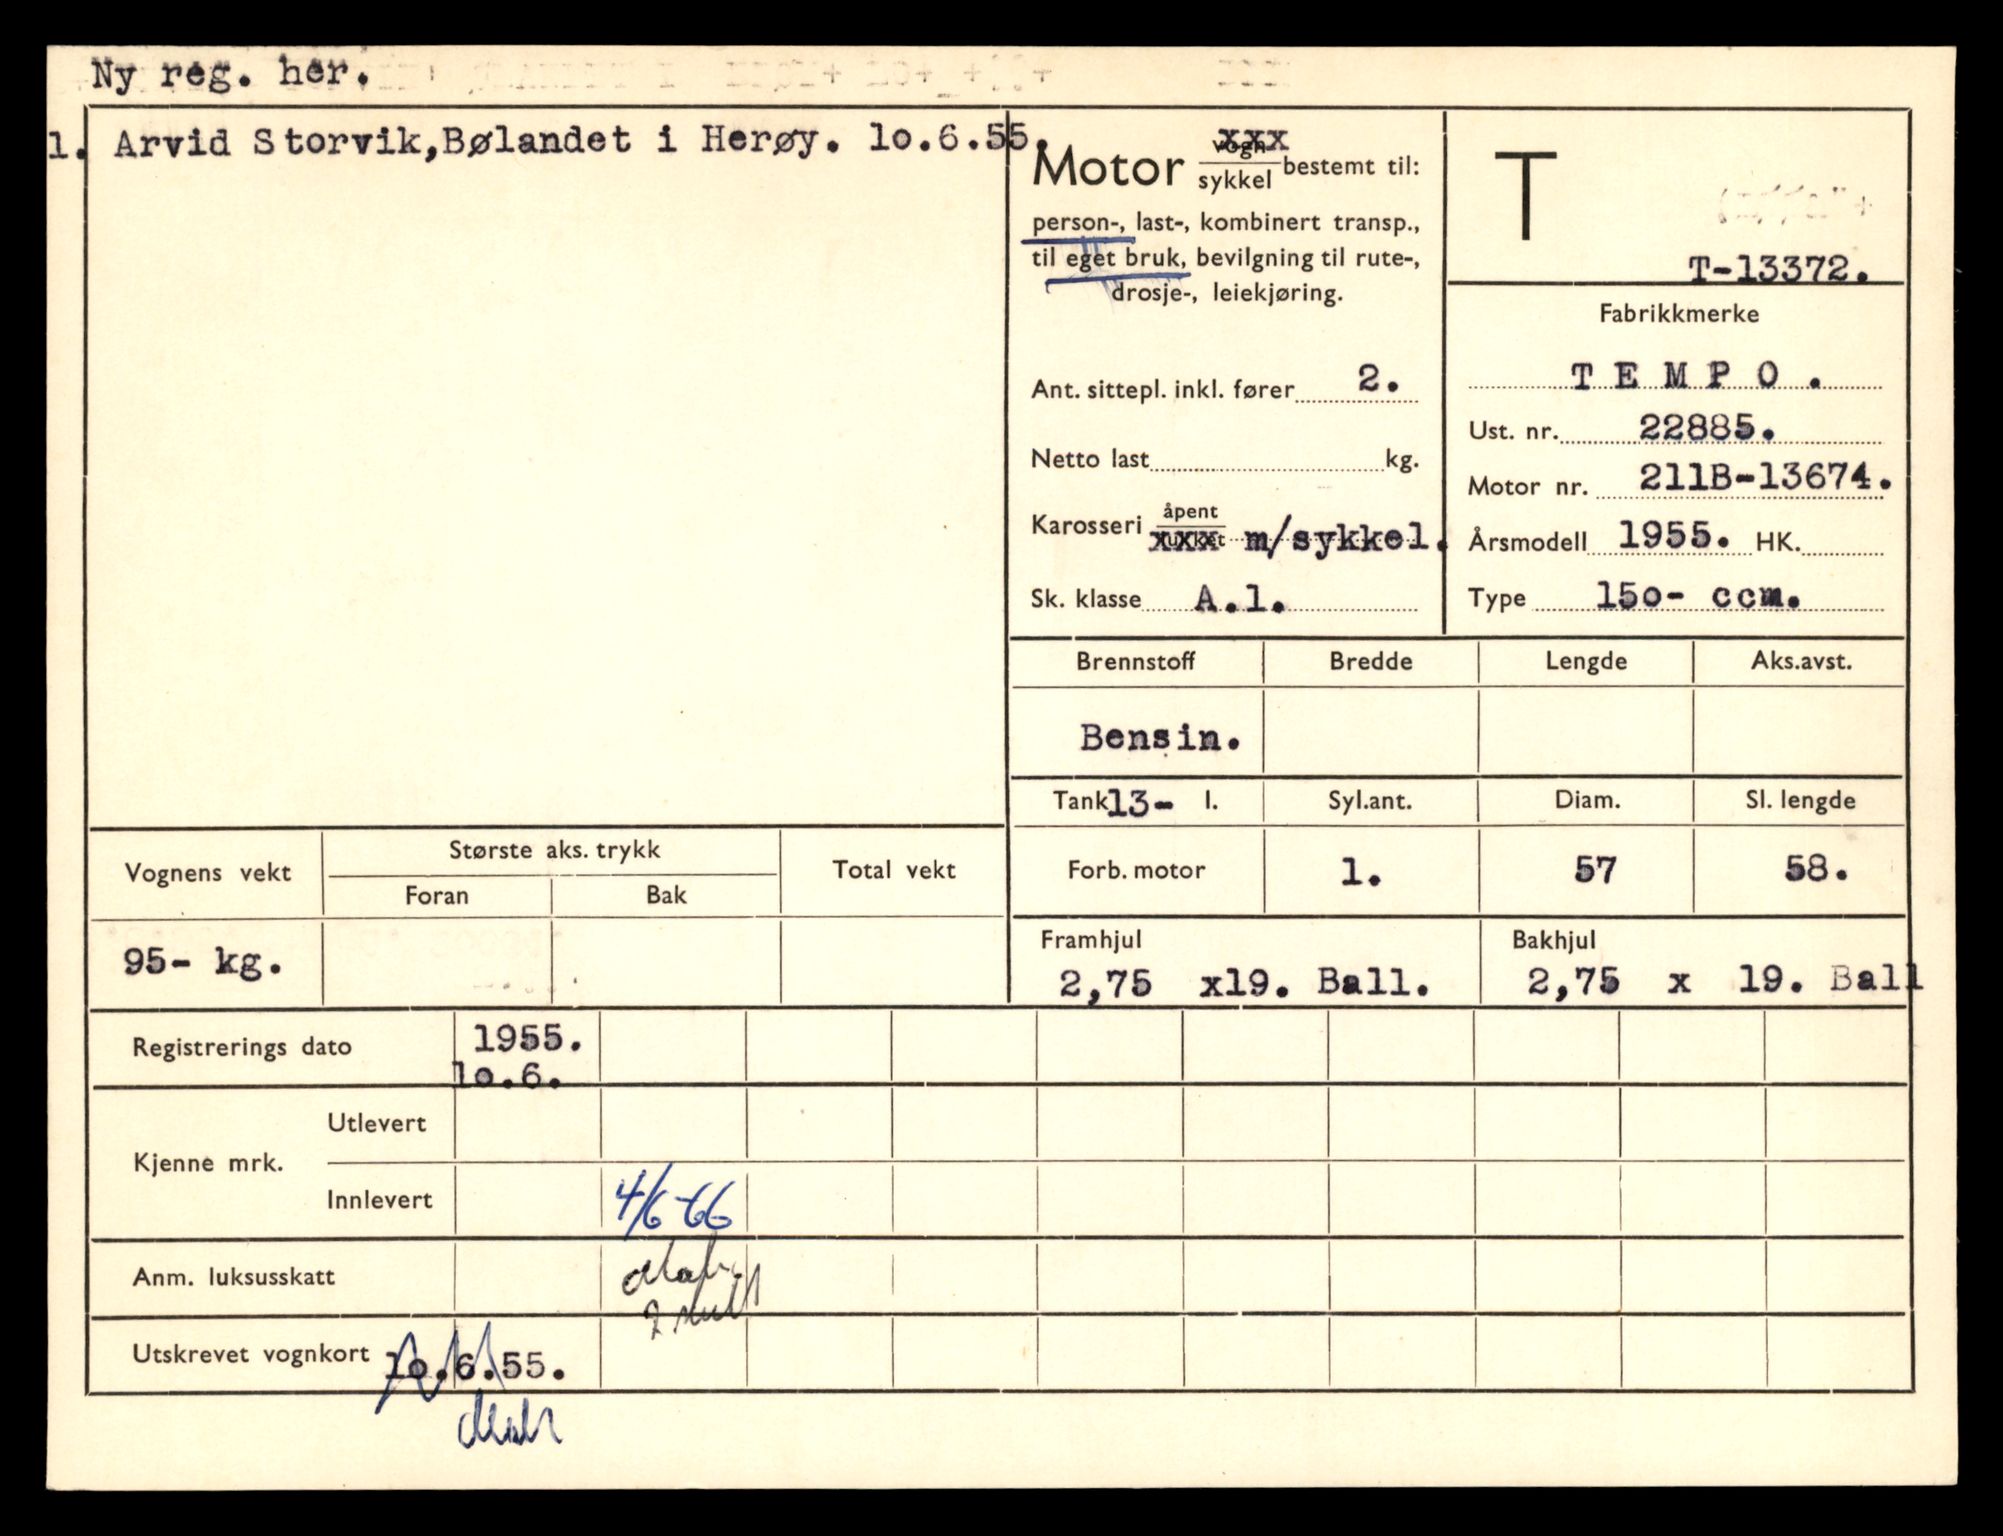 Ny reg. her.
1. Arvid Storvik,Bølandet i Herøy. lo.6.55.
Motor vogn xxx
sykkel bestemt til:
person-, last-, kombinert transp.,
til eget bruk, bevilgning til rute-,
drosje-, leiekjøring.
Ant. sittepl. inkl. fører 2.
Netto last kg.
Karosseri åpent
lukket xxx m/sykkel.
Sk. klasse A.l.
T
T-13372.
Fabrikkmerke
T E M P O .
Ust. nr. 22885.
Motor nr. 211B-13674.
Årsmodell 1955. HK.
Type 15o- ccm.
Brennstoff Bredde Lengde Aks.avst.
Bensin.
Tank 13- l. Syl.ant. Diam. Sl. lengde
Forb. motor 1. 57 58.
Framhjul Bakhjul
2,75 x19. Ball. 2,75 x 19. Ball
Vognens vekt Største aks. trykk Total vekt
Foran Bak
95- kg.
Registrerings dato 1955.
lo.6.
Kjenne mrk. Utlevert
Innlevert 4/6-66
Anm. luksusskatt
Utskrevet vognkort lo.6.55.